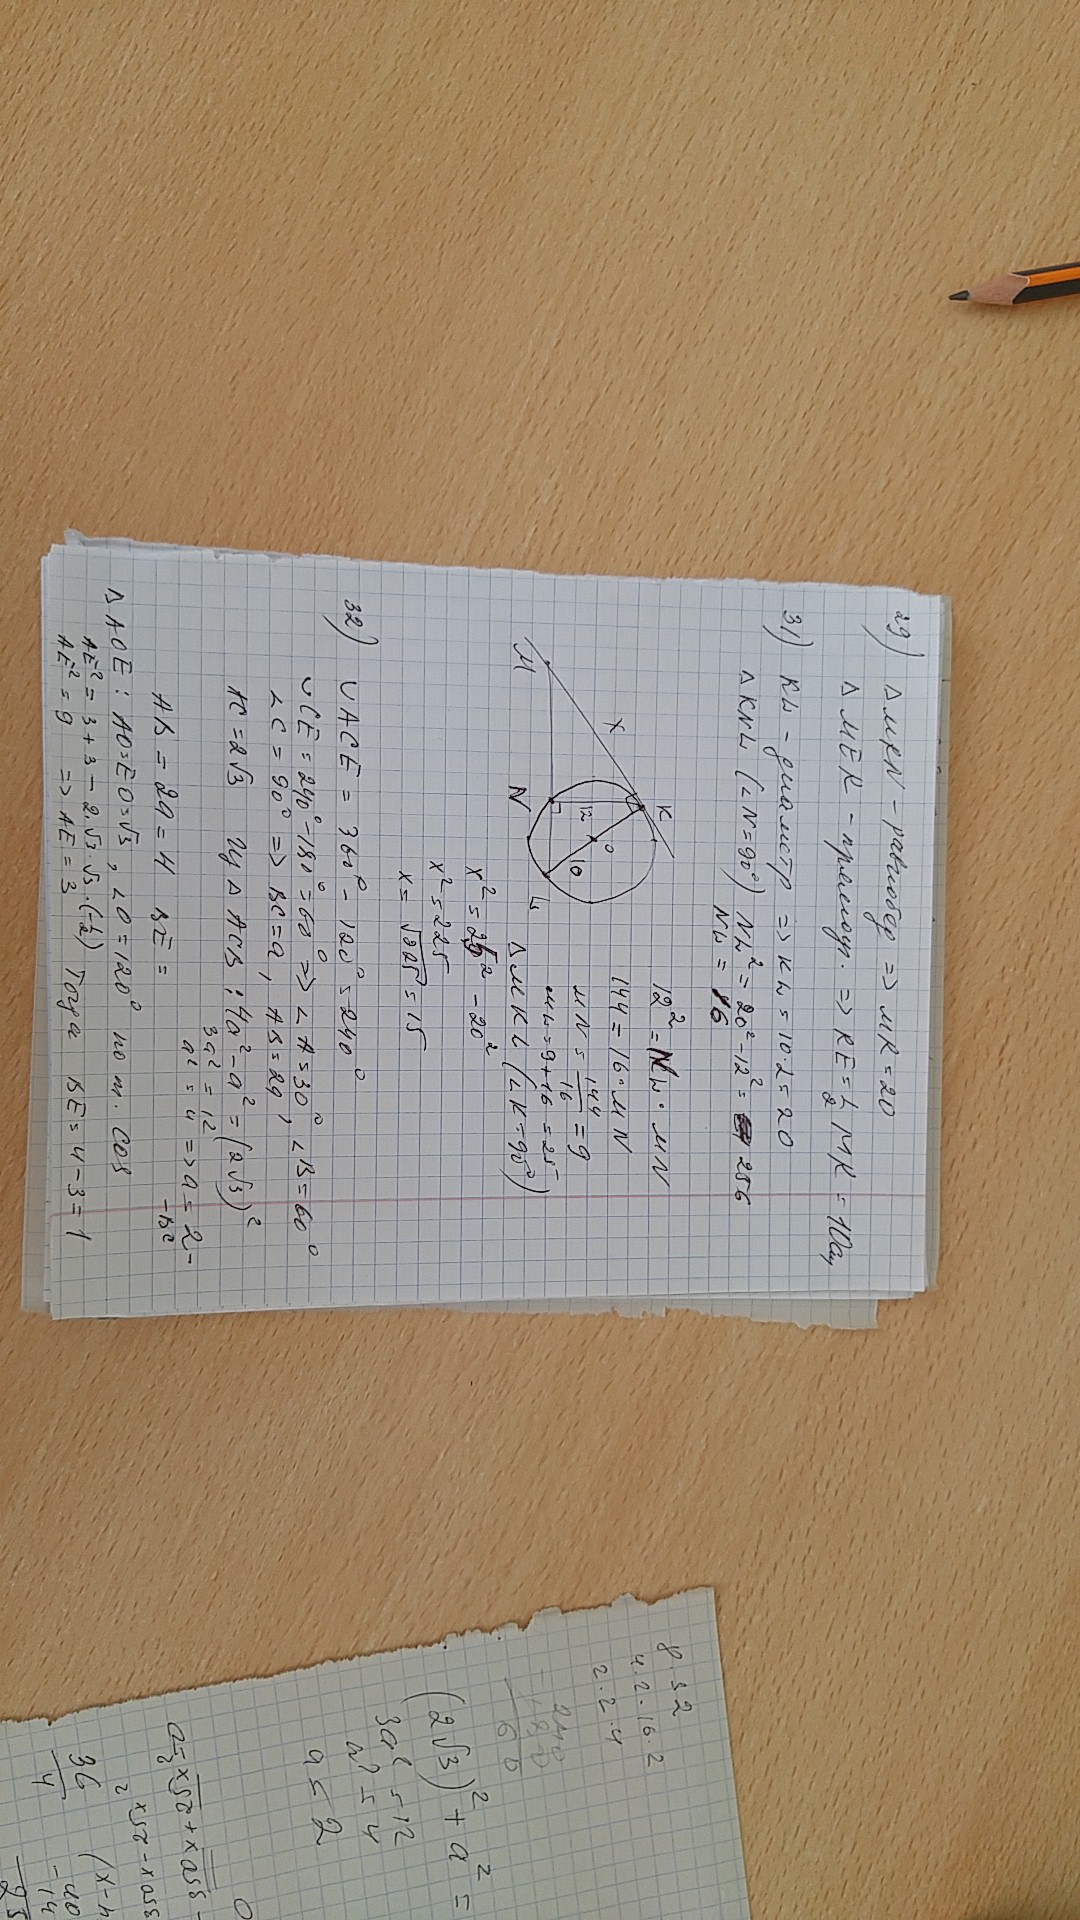 29) Δ MKN - равнобедр => MK = 20
Δ MEK - прямоуг. => KE = 1/2 MK = 10
31) KL - диаметр => KL = 10·2 = 20
Δ KNL (∠N=90°) NL² = 20² - 12² = 256
NL = 16
12² = NL · MN
144 = 16 · MN
MN = 144/16 = 9
ML = 9+16 = 25
Δ MKL (∠K=90°)
x² = 25² - 20²
x² = 225
x = √225 = 15
M
X
K
N
12
O
10
L
32) ∪ACE = 360° - 120° = 240°
∪CE = 240° - 180° = 60° => ∠A = 30° ∠B = 60°
∠C = 90° => BC = a, AB = 2a,
AC = 2√3 Из Δ ACB: 4a² - a² = (2√3)²
3a² = 12
a² = 4 => a = 2
AB = 2a = 4 BE =
Δ AOE: AO=EO=√3, ∠O=120° по т. cos
AE² = 3+3 - 2·√3·√3·(-1/2)
AE² = 9 => AE = 3 Тогда BE = 4-3 = 1
8·32
4·2·16·2
2·2·4
240
180
60
(2√3)² + a² =
3a² = 12
a² = 4
a = 2
36
4
(x-4
-40
14